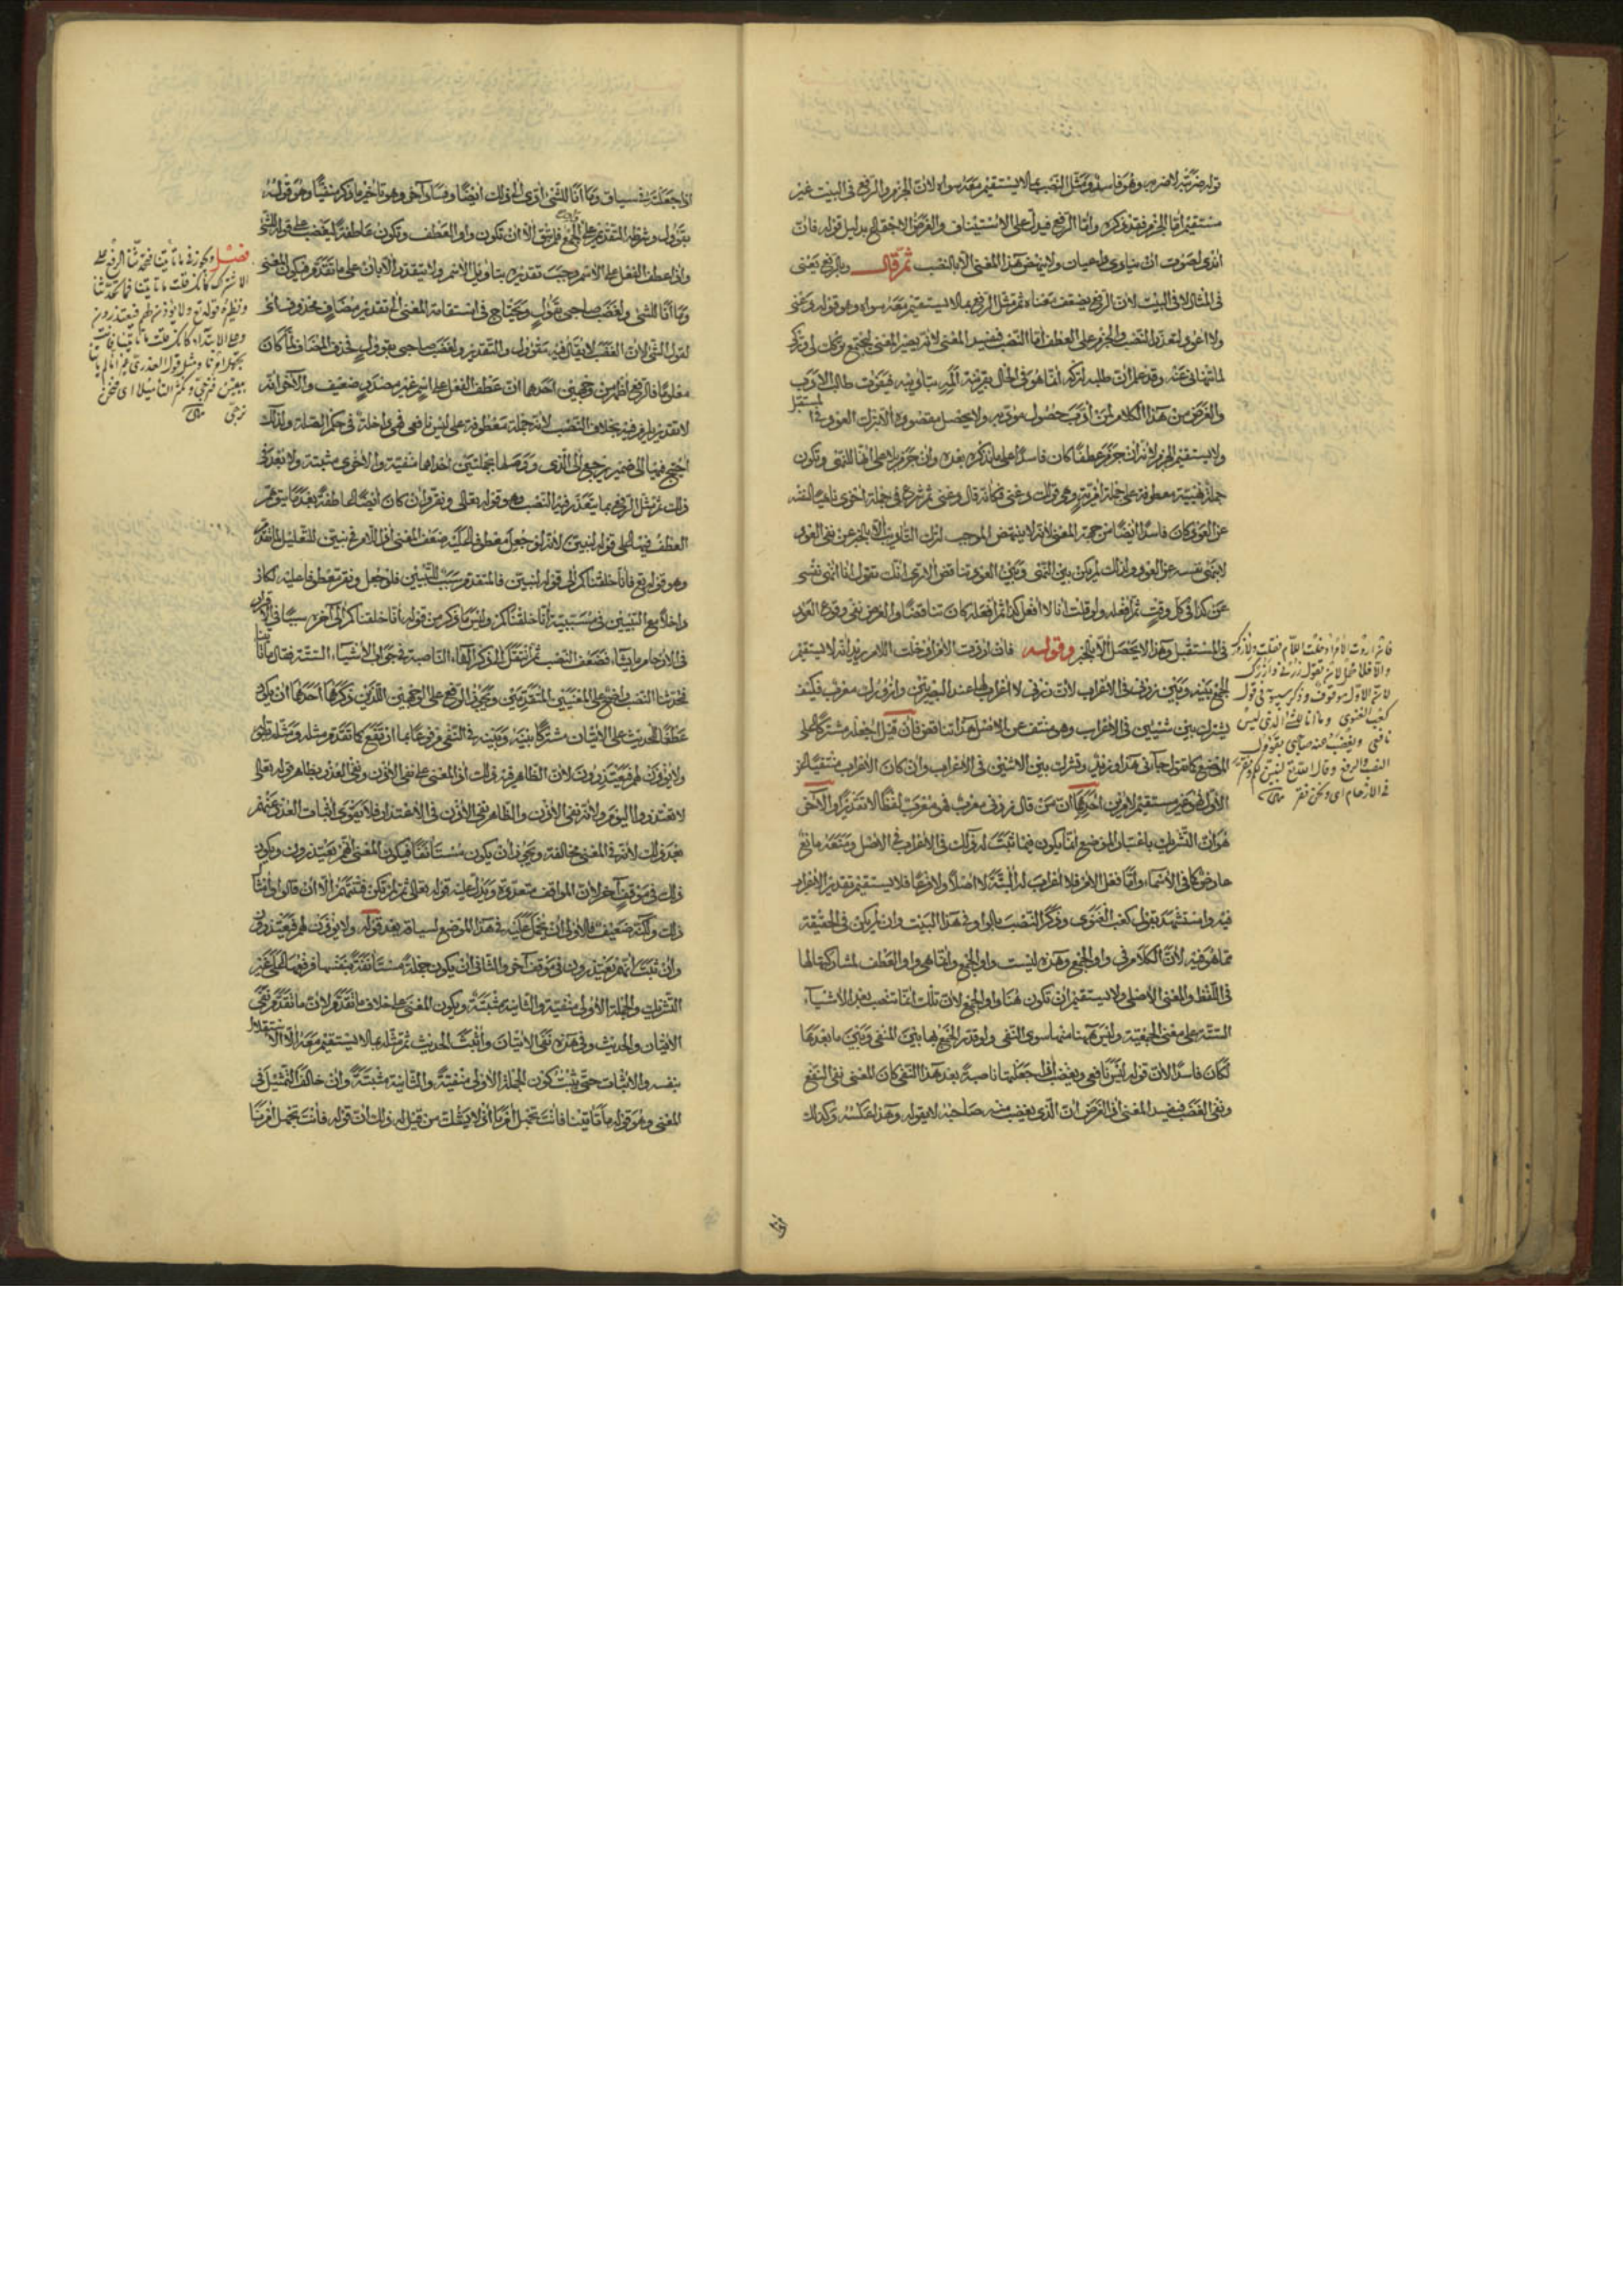 قوله ضربته لاضربه وهو فاسد ومثل النصب بما لا يستقيم معه سواه لان الجزم والرفع في البيت غير
مستقيم اما الجزم فقد ذكره واما الرفع فيدل على الاستيناف والغرض الاجتماع بدليل قوله فان
اندى لصوت ان ينادى داعيان ولا ينهض هذا المعنى الا بالنصب ثم قال وبالرفع يعنى
في المثال لا في البيت لان الرفع يضعف معناه ثم مثل الرفع بما لا يستقيم معه سواه وهو قوله دعني
ولا اعود لتعذر النصب والجزم على العطف اما النصب فيفسد المعنى لانه يصير المعنى ليجتمع تركك لي وتركي
لما تنهاني عنه وقد علم ان طلبه لتركه انما هو في الحال بقرينة الم بتأديبه فيفوت طالب الادب
والغرض من هذا الكلام لمن ادب حصول مؤدبه ولا يحصل مقصوده الا بترك العود في المستقبل
ولا يستقيم الجزم لانه ان جزم عطفا كان فاسدا على ما يذكره بعده وان جزم بلا على انها للنهي وتكون
جملة نهيية معطوفة على جملة امرية وهي قولك دعني فكأنه قال دعني ثم شرع في جملة اخرى ناهيا لنفسه
عن العود كان فاسدا ايضا من جهة المعنى لانه لا ينهض الموجب لترك التأديب الا بالخبر عن نفي العود
لا بنهي نفسه عن العود ولذلك لم يكن بين النهي وبين العود تناقض الا ترى انك تقول انا انهى نفسي
عن كذا في كل وقت ثم افعله ولو قلت انا لا افعل كذا ثم افعله كان تناقضا والغرض نفي وقوع العود
في المستقبل وهذا لا يحصل الا بالخبر وقوله فان اردت الامر ادخلت اللام يريد انه لا يستقيم
الجمع بينه وبين زرني في الاعراب لان زرني لا اعراب لها عند البصريين وازورك معرب فكيف
يشرك بين شيئين في الاعراب وهو منتف عن الاصل هذا تناقض فان قيل اجعله مشتركا على
الموضع كما تقول جاءني هذا وزيد وتشرك بين الاثنين في الاعراب وان كان الاعراب منتفيا عن
الاول فهو غير مستقيم لامرين احدهما ان من قال زرني معرب فهي معرب لفظا لا تقديرا والآخر
هو ان التشريك باعتبار الموضع انما يكون فيما ثبت له ذلك في الاعراب في الاصل ومنعه مانع
عارض كما في الاسماء واما فعل الامر فلا اعراب له البتة لا اصلا ولا فرعا فلا يستقيم تقدير الاعراب
فيه واستشهد بقول كعب الغنوي وذكر النصب بالواو في هذا البيت وان لم يكن في الحقيقة
مما هو فيه لان الكلام في واو الجمع وهذه ليست واو الجمع وانما هي واو العطف لمشاركتها لها
في اللفظ والمعنى الاصلي ولا يستقيم ان تكون هنا واو الجمع لان تلك انما تنصب بعد الاشياء
الستة على معنى الجمعية وليس ههنا منها سوى النفي ولو قدر الجمع بها بين المنفي وبين ما بعدها
لكان فاسدا لان قوله ليس نافعي ويغضب اذا جعلتها ناصبة بعد هذا النفي كان المعنى نفي النفع
ونفي الغضب فيفسد المعنى اذ الغرض ان الذي يغضب منه صاحبه لا يقوله وهذا عكسه وكذلك
فان اردت الامر ادخلت اللام فقلت ولأزرك
والا فلا محل لان تقول زرني وازرك
لان الاول موقوف وذكر سيبويه في قول
كعب الغنوي وما انا للشيء الذي ليس
نافعي ويغضب منه صاحبي بقؤول
النصب والرفع وقال الله تع لنبين لكم ونقر
في الارحام اى ونحن نقر
اذا جعلته سياق وما انا للشيء ادى الى ذلك ايضا وفساد آخر وهو تأخير ما ذكر منفيا وهو قوله
بقؤول وشرطه التقديم على الجمع فلم يبق الا ان تكون واو العطف وتكون عاطفة ليغضب على قوله للشيء
واذا عطف الفعل على الاسم وجب تقديره بتأويل الاسم ولا يتقدر الا بان على ما تقدم فيكون المعنى
وما انا للشيء ولغضب صاحبي بقؤول ويحتاج في استقامة المعنى الى تقدير مضاف محذوف اى
لقول الشيء لان الغضب لا يقال فيه مقؤول والتقدير ولغضب صاحبي بقؤول فحذف المضاف لما كان
معلوما فالرفع اظهر من وجهين احدهما ان عطف الفعل على اسم غير مصدر ضعيف والآخر انه
لا تقدير يلزم فيه بخلاف النصب لانه جملة معطوفة على ليس نافعي فهي داخلة في حكم الصلة ولذلك
احتيج فيها الى ضمير يرجع الى الذي ووصلها بجملتين احداهما منفية والاخرى مثبتة ولا بعد في
ذلك ثم مثل الرفع بما يتعذر فيه النصب وهو قوله تعالى ونقر وان كان ايضا لعاطفة بعد ما يتوهم
العطف فيها على قوله لنبين لانه لو جعل معطوفا عليه ضعف المعنى اذ اللام في نبين للتعليل لما تقدم
وهو قوله تع فانا خلقناكم الى قوله لنبين فالمتقدم سبب للتبيين فلو جعل ونقر معطوفا عليه لكان
داخلا مع التبيين في مسببية انا خلقناكم وليس ما ذكر من قوله انا خلقناكم الى آخره سببا في الاقرار
في الارحام ما يشاء فضعف النصب ثم انتقل الى ذكر الفاء الناصبة في جواب الاشياء الستة فقال ما تأتينا
فتحدثنا النصب واضح على المعنيين المتقدمين ويجوز الرفع على الوجهين اللذين ذكرهما احدهما ان يكون
عطفا للحديث على الاتيان مشتركا بينه وبينه في النفي مرفوعا بما ارتفع كما تقدم مثله ومثله بقوله
ولا يؤذن لهم فيعتذرون لان الظاهر فيه ذلك اذ المعنى على نفي الاذن ونفي العذر بظاهر قوله تعالى
لا تعتذروا اليوم ولانه نفي الاذن والظاهر نفي الاذن في الاعتذار فلا يقوى اثبات العذر عنهم
بعد ذلك لانه في المعنى مخالفة ويجوز ان يكون مستأنفا فيكون المعنى انهم يعتذرون ويكون
ذلك في موقف آخر لان المواقف متعددة ويدل عليه قوله تعالى ثم لم تكن فتنتهم الا ان قالوا وامثال
ذلك ولكنه ضعيف فالاولى ان يحمل عليه في هذا الموضع لسياقه بعد قوله ولا يؤذن لهم فيعتذرون
وان ثبت انهم يعتذرون في موقف آخر والثاني ان يكون جملة مستأنفة بنفسها فرفعها على غير
التشريك والجملة الاولى منفية والثانية مثبتة ويكون المعنى على خلاف ما تقدم لان ما تقدم نفى
الاتيان والحديث وفي هذه نفى الاتيان واثبت الحديث ثم مثله بما لا يستقيم معه الا الاستقلال
بنفسه والاثبات حتى يثبت كون الجملة الاولى منفية والثانية مثبتة وان خالف التمثيل في
المعنى وهو قوله ما تأتينا فانت تجهل امرنا اذ لا يفلت من قبل له ذلك ان قوله فانت تجهل امرنا
فصل ويجوز في ما تأتينا فتحدثنا الرفع على
الاشتراك كأنك قلت ما تأتينا فما تحدثنا
ونظيره قوله تع ولا يؤذن لهم فيعتذرون
وعلى الابتداء كأنك قلت ما تأتينا فانت
تجهل امرنا ومثل قول العنبري غير انا لم تأتنا
بيقين فنرجي ونكثر التأميلا اى فنحن
نرجي